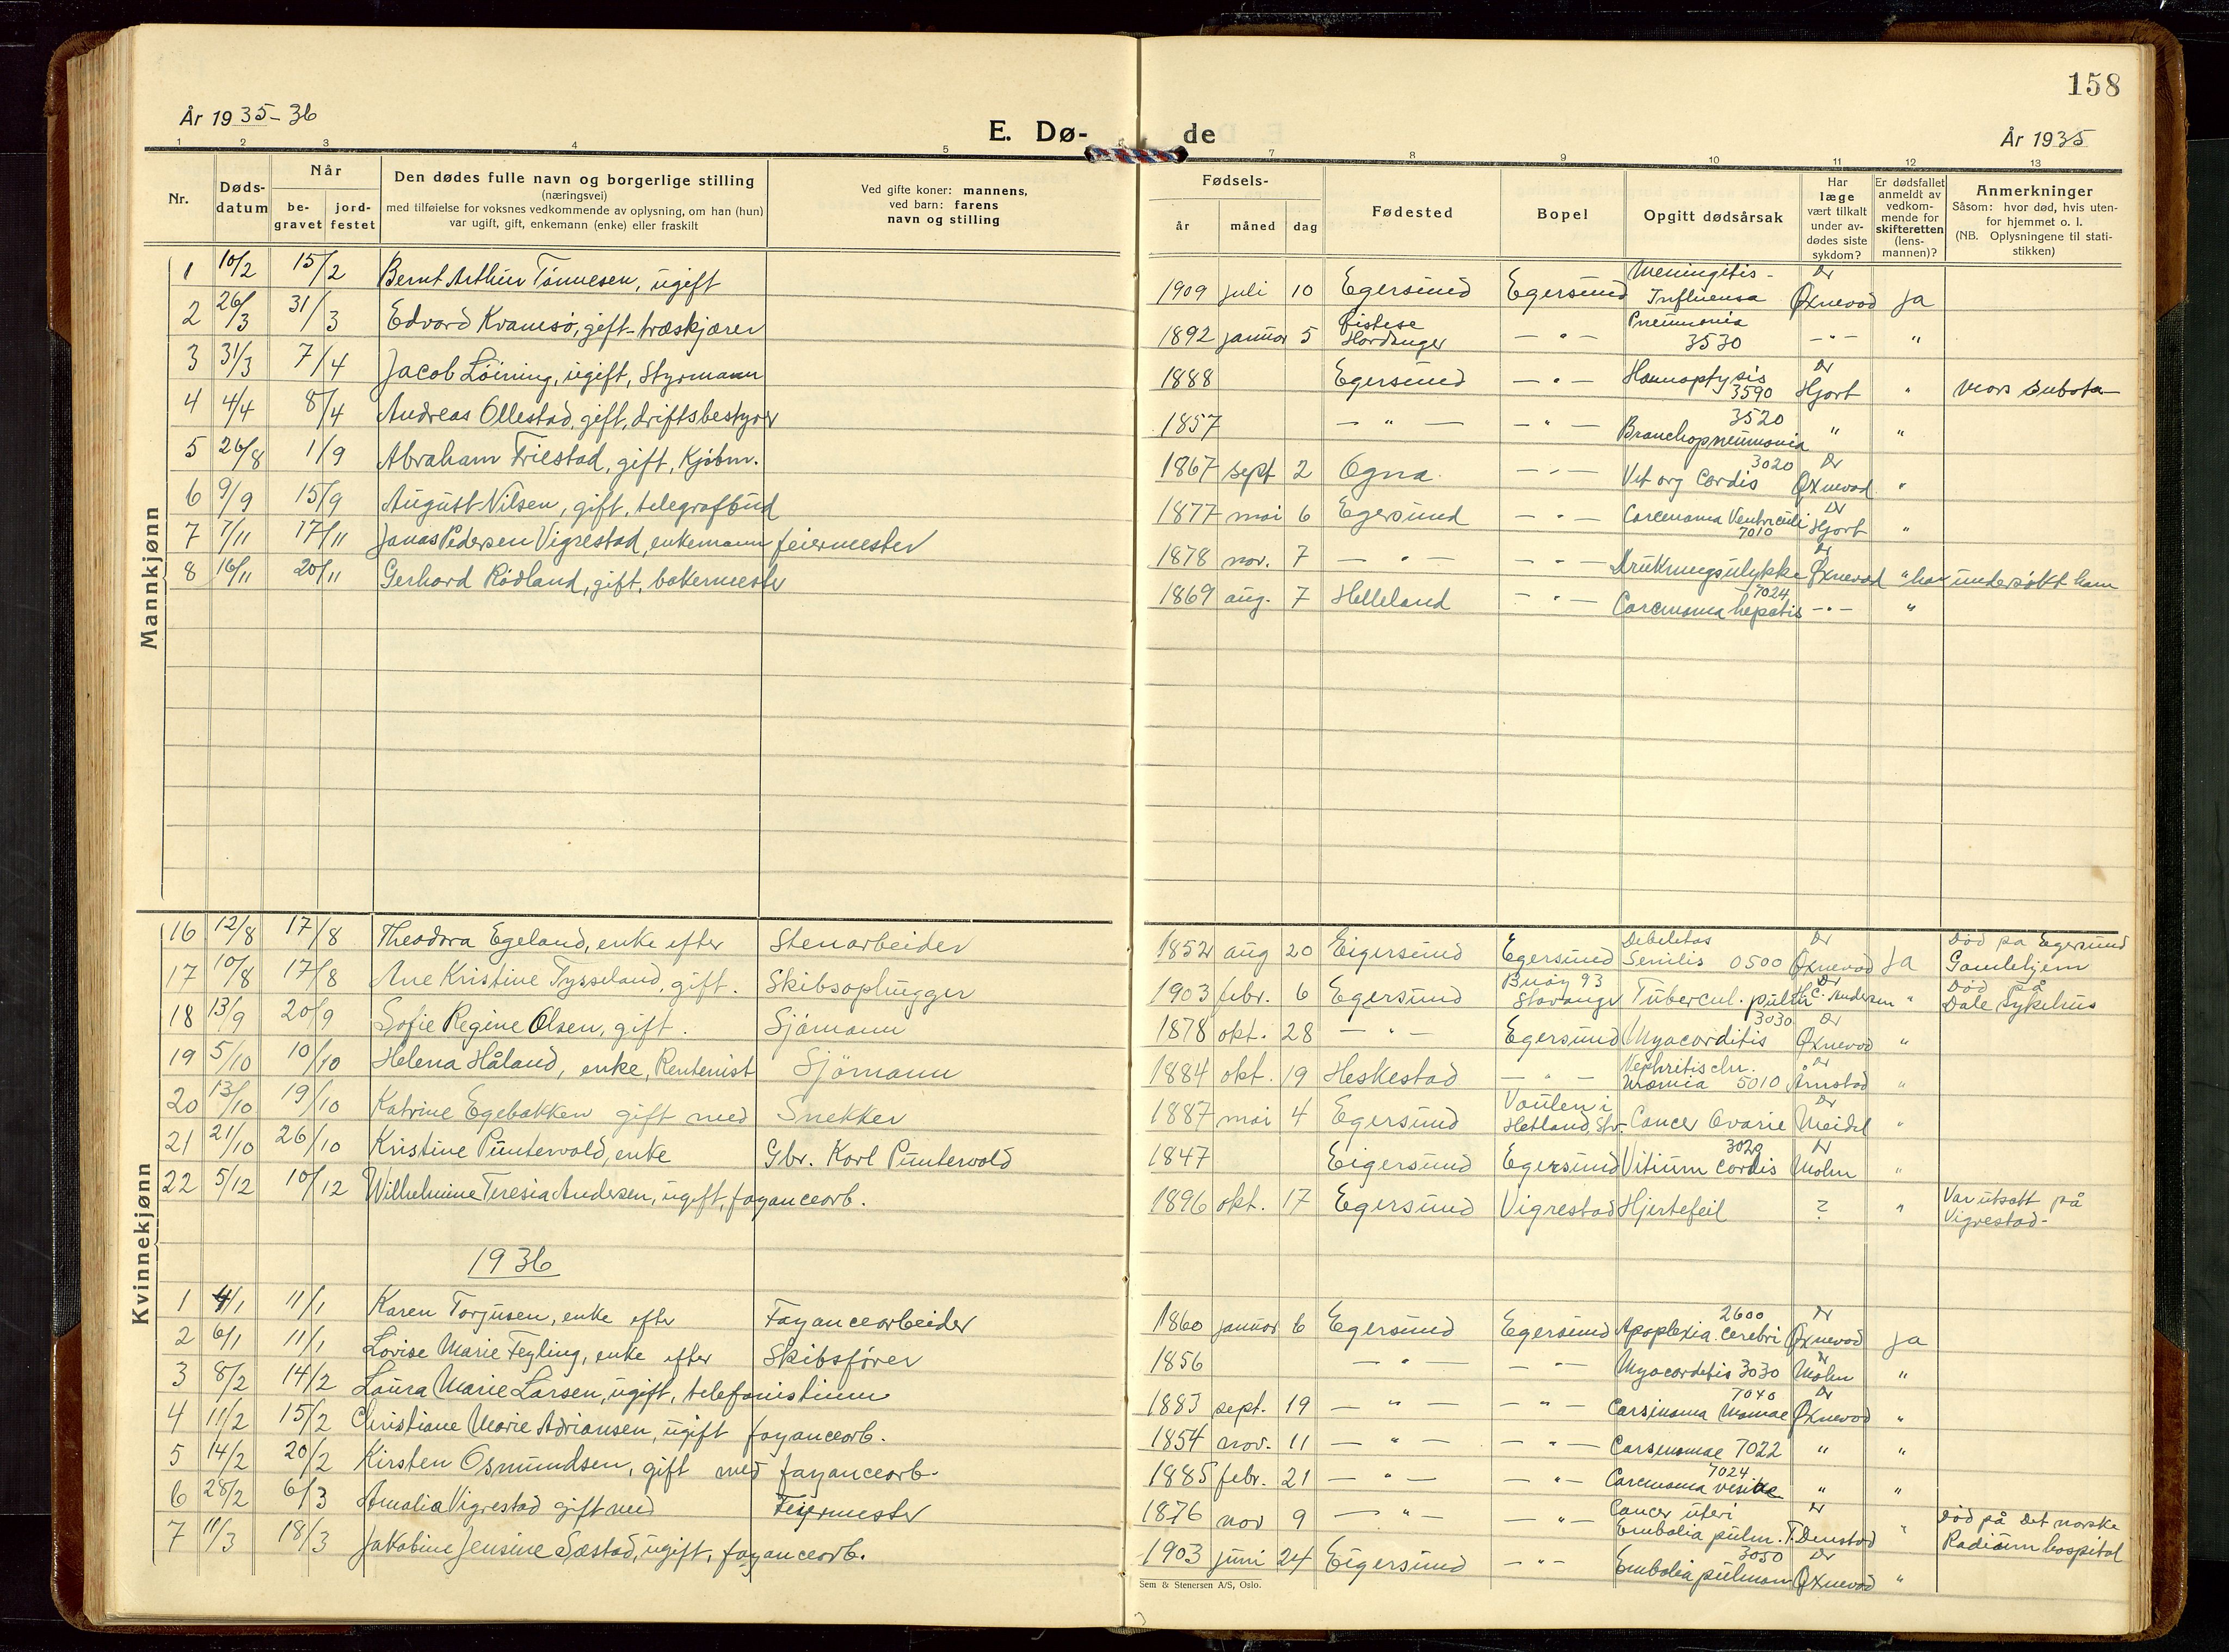 158
År 1935-36
E. Dø- de
År 1935
1 2 3 4 5 7 8 9 10 11 12 13
Nr.
Døds-
datum
Når
be-
gravet
jord-
festet
Den dødes fulle navn og borgerlige stilling
(næringsvei)
med tilføielse for voksnes vedkommende av oplysning, om han (hun)
var ugift, gift, enkemann (enke) eller fraskilt
Ved gifte koner: mannens,
ved barn: farens
navn og stilling
Fødsels-
år måned dag
Fødested
Bopel
Opgitt dødsårsak
Har
læge
vært tilkalt
under av-
dødes siste
sykdom?
Er dødsfallet
anmeldt av
vedkom-
mende for
skifteretten
(lens-
mannen)?
Anmerkninger
Såsom: hvor død, hvis uten-
for hjemmet o. l.
(NB. Oplysningene til stati-
stikken)
Mannkjønn
1 10/2 15/2 Bernt Arthur Tønnesen, ugift 1909 juli 10 Egersund Egersund Meningitis - Influensa Dr Øxnevad Ja
2 26/3 31/3 Edvard Kvamsø, gift - træskjærer 1892 januar 5 Østese Hardanger — " — Pneumonia 3530 — " — "
3 31/3 7/4 Jacob Löining, ugift, Styrmann 1888 Egersund — " — Hæmoptysis 3590 Dr Hjort " mors substa-
4 4/4 8/4 Andreas Ollestad, gift, driftsbestyrer 1857 — " — — " — 3520 Bronchopneumonia " "
5 26/8 1/9 Abraham Friestad, gift, Kjøbm. 1867 sept 2 Ogna — " — 3020 Vit org Cordis Dr Øxnevad "
6 9/9 15/9 August Nilsen, gift, telegrafbud 1877 mai 6 Egersund — " — Carcenoma Ventriculi 7010 Dr Hjort "
7 7/11 17/11 Jonas Pedersen Vigrestad, enkemann feiermester 1878 nov. 7 — " — — " — Drukningsulykke Dr Øxnevad " har undersøkt ham
8 16/11 20/11 Gerhard Rödland, gift, bakermester 1869 aug. 7 Helleland — " — 7024 Carcinoma hepatis — " — "
Kvinnekjønn
16 12/8 17/8 Theodora Egeland, enke efter Stenarbeider 1852 aug 20 Eigersund Egersund Debeletas Senilis 0500 Dr Øxnevad Ja Død på Egersund Gamlehjem
17 10/8 17/8 Ane Kristine Tysseland, gift. Skibsophugger 1903 febr. 6 Egersund Buøy 93 Stavanger Tubercul. pulm Dr H.C. Andersen " Død på Dale Sykehus
18 13/9 20/9 Sofie Regine Olsen, gift. Sjømann 1878 okt. 28 — " — Egersund 3030 Myocarditis Dr Øxnevad "
19 5/10 10/10 Helena Håland, enke, Rentenist Sjømann 1884 okt. 19 Heskestad — " — Nephritis chr. Uræmia 5010 Dr Årnstad "
20 13/10 19/10 Katrine Egebakken gift med Snekker 1887 mai 4 Egersund Vaulen i Hetland, Stv. Cancer Ovarie Dr Meidel "
21 21/10 26/10 Kristine Puntervold, enke Gbr. Karl Puntervold 1847 Eigersund Egersund 3020 Vitium Cordis Dr Molm "
22 5/12 10/12 Wilhelmine Teresia Andersen, ugift, fayanceorb. 1896 okt. 17 Egersund Vigrestad Hjertefeil ? " Var utsatt på Vigrestad-
1936
1 4/1 11/1 Karen Torjusen, enke efter Fayancearbeider 1860 januar 6 Egersund Egersund 2600 Apoplexia cerebri Dr Øxnevad Ja
2 6/1 11/1 Lovise Marie Feyling, enke efter Skibsfører 1856 — " — — " — Myocardetis 3030 Dr Molm "
3 8/2 14/2 Laura Marie Larsen, ugift, telefonistinne 1883 sept. 19 — " — — " — 7040 Carsinoma Mamae Dr Øxnevad "
4 11/2 15/2 Christiane Marie Adriansen, ugift fayanceorb. 1854 nov. 11 — " — — " — Carsinomae 7022 " "
5 14/2 20/2 Kirsten Osmundsen, gift med fayanceorb. 1885 febr. 21 — " — — " — 7024 Carcinoma " "
6 28/2 6/3 Amalia Vigrestad gift med Feiermester 1876 nov 9 — " — — " — Cancer uteri Embolia pulm. Dr T. Denstad " Død på Det norske Radium hospital
7 11/3 18/3 Jakobine Jensine Sæstad, ugift, fayanceorb. 1903 juni 24 Eigersund — " — 3050 Embolia pulmon Dr Øxnevad "
Sem & Stenersen A/S, Oslo.